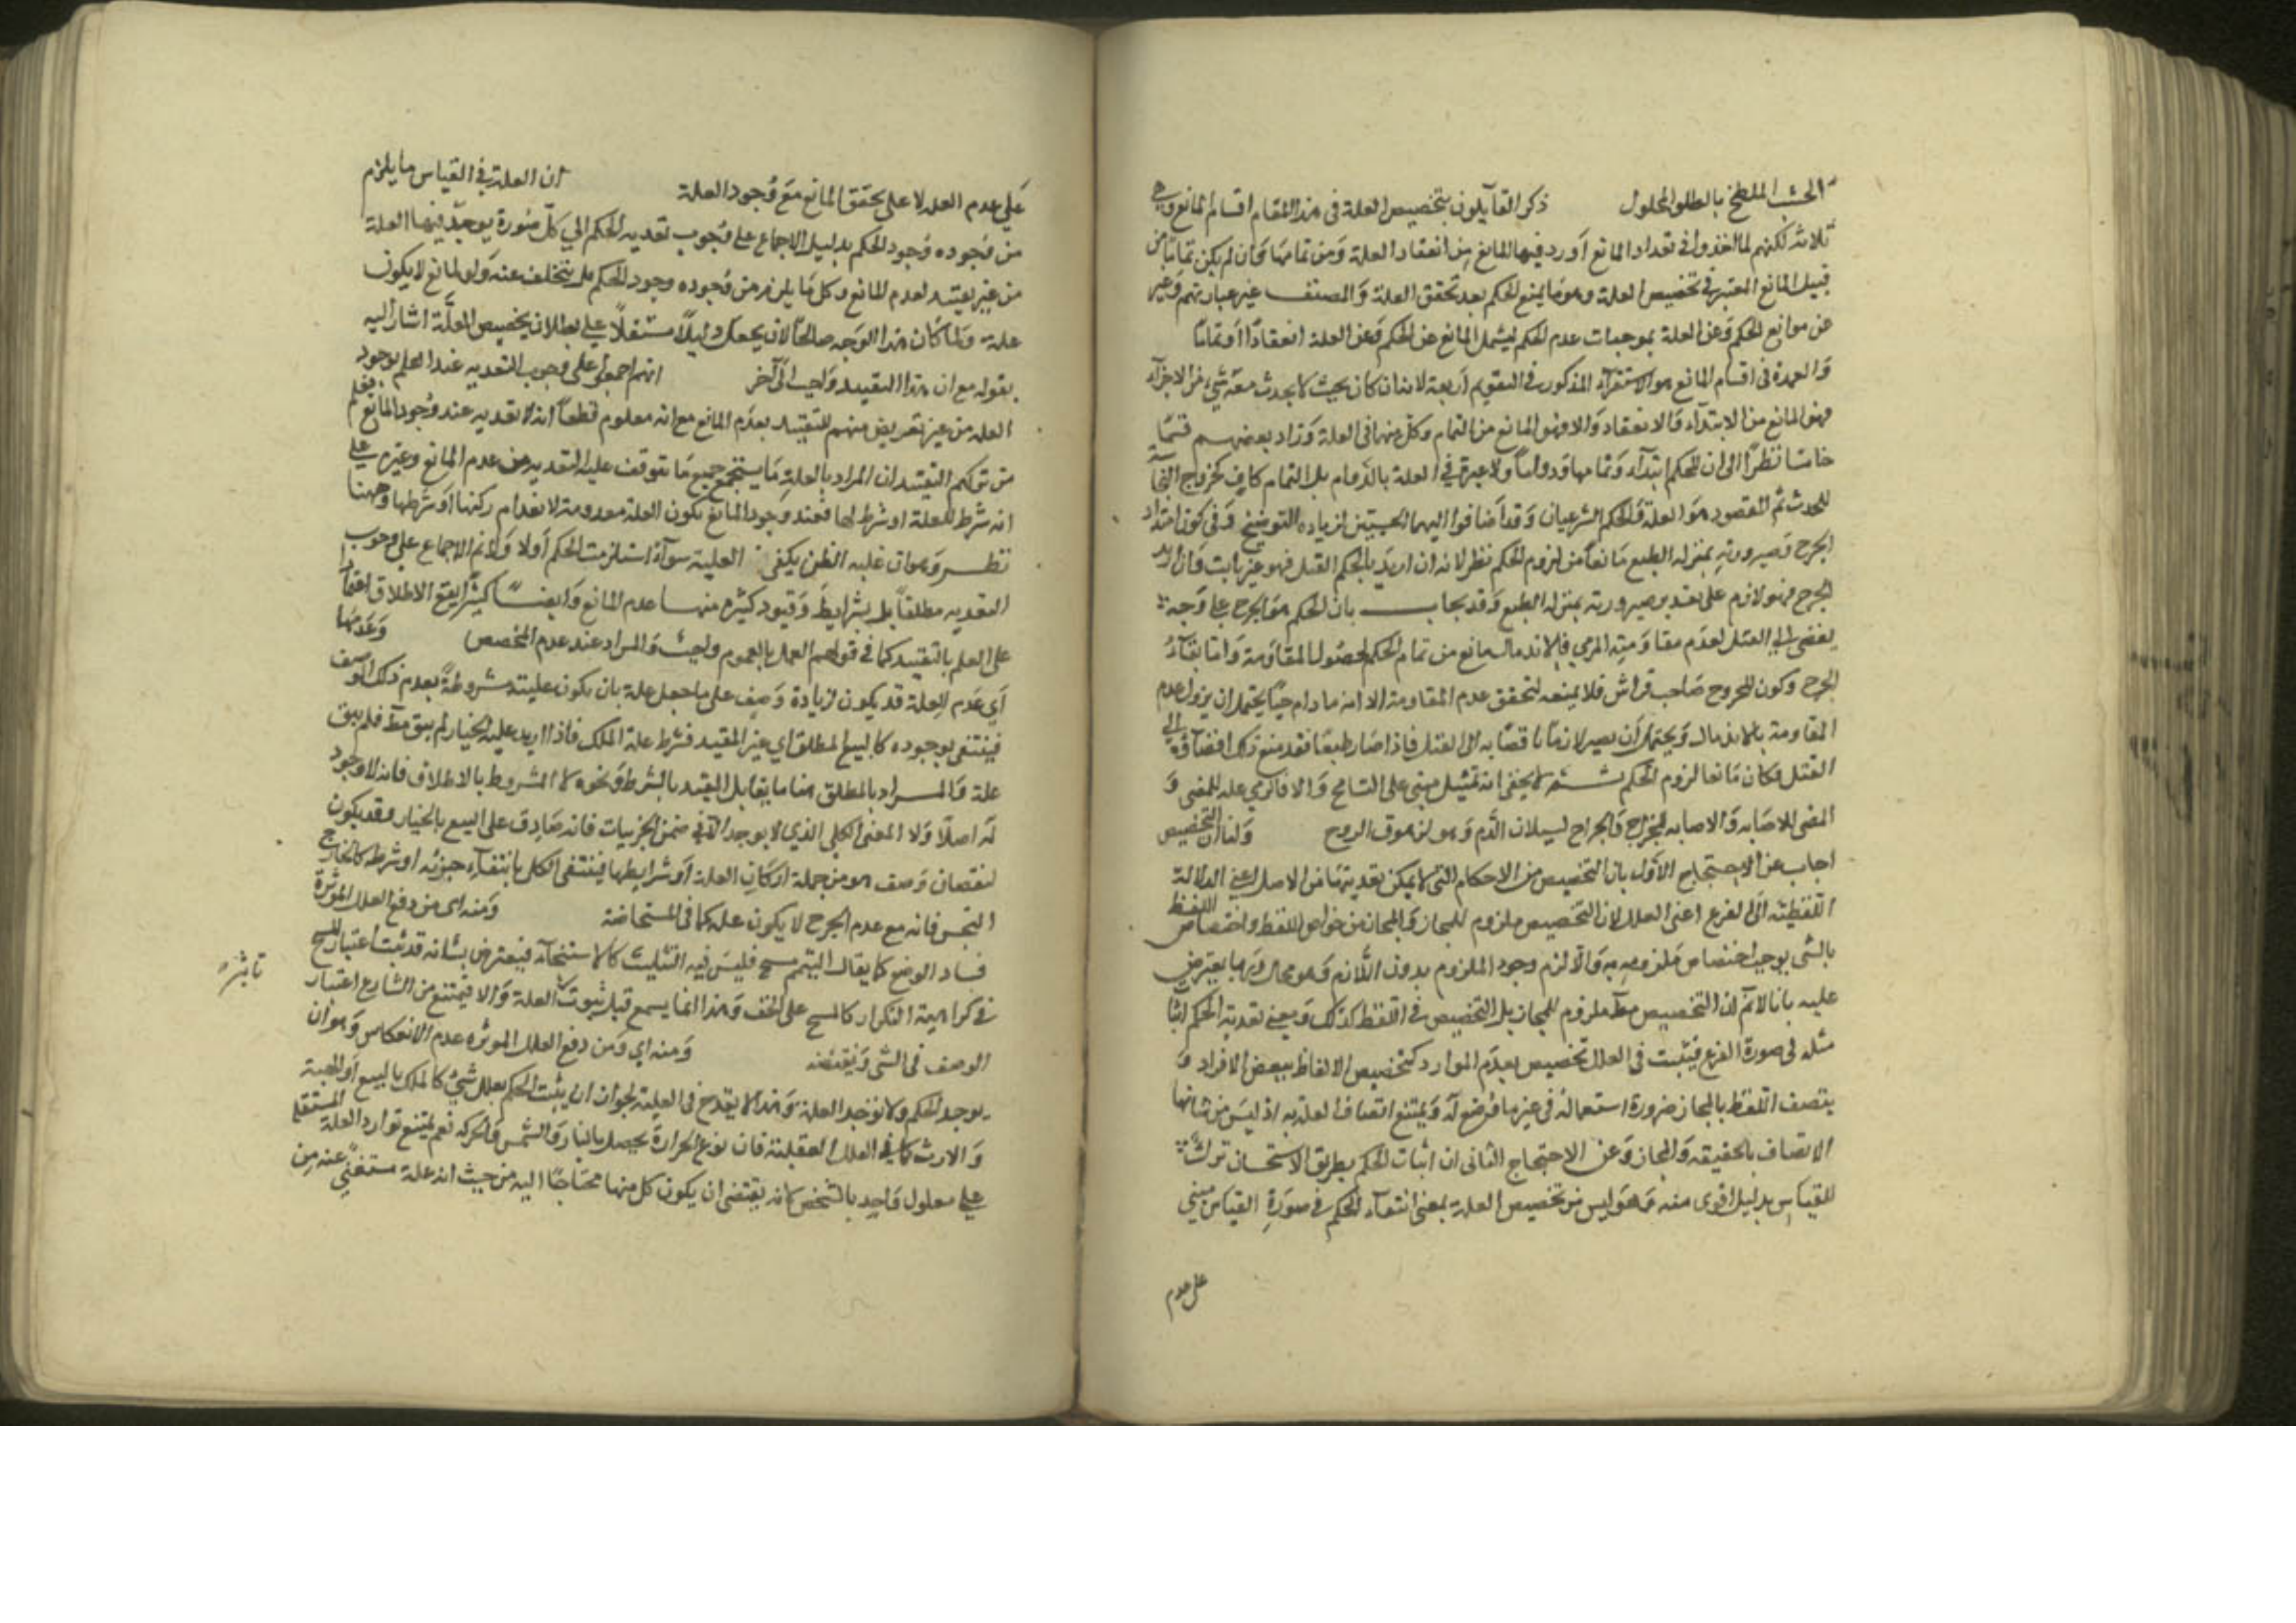 الخشب الملطخ بالطلق المحلول ذكر القآيلون بتخصيص العلة فى هذا المقام اقسام المانع وهي
ثلاثة لكنهم لما اخذوا فى تعداد المانع اورد فيها المانع من انعقاد العلة ومن تمامها وان لم يكن تمامًا من
قبيل المانع المعتبر فى تخصيص العلة وهو ما يمنع الحكم بعد تحقق العلة والمصنف غير عبارتهم وعبر
عن موانع الحكم وعن العلة بموجبات عدم الحكم ليشمل المانع عن الحكم وعن العلة انعقادًا او تمامًا
والعمدة فى اقسام المانع هو الاستقرآء المذكور فى التقويم اربعة لانه ان كان بحيث لا يحدث معه شيء من الاجزآء
فهو المانع من الابتدآء والانعقاد والا فهو المانع من التمام وكل منهما فى العلة وزاد بعضهم قسمًا
خامسًا نظرًا الى ان للحكم ابتدآء وتماما ودوامًا ولا عبرة فى العلة بالدوام بل التمام كاف كخروج النجاسة
للحدث ثم المقصود هو العلة والحكم الشرعيان وقد اضافوا اليهما الحسيين لزيادة التوضيح وفى كون امتداد
الجرح وصيرورته بمنزلة الطبع مانعًا من لزوم الحكم نظر لانه ان اريد بالحكم القتل فهو غير ثابت وان اريد
الجرح فهو لازم على تقدير صيرورته بمنزلة الطبع وقد يجاب بان الحكم هو الجرح على وجه
يفضى الى القتل لعدم مقاومته المرمي فالاندمال مانع من تمام الحكم لحصول المقاومة واما بقآء
الجرح وكون المجروح صاحب فراش فلا يمنعه لتحقق عدم المقاومة الا انه ما دام حيًا يحتمل ان يزول عدم
المقاومة بالاندمال ويحتمل ان يصير لازمًا بافضائه الى القتل فاذا صار طبعًا فقد منع ذلك افضآؤه الى
القتل فكان مانعا لزوم الحكم ثم لا يخفى انه تمثيل مبنى على التسامح والا فالرمي علة للمضي و
المضى للاصابة والاصابة للجراح والجراح لسيلان الدم وهو لزهوق الروح ولنا ان التخصيص
اجاب عن الاحتجاج الاول بان التخصيص من الاحكام التى لا يمكن تعديتها من الاصل اعنى الدلالة
اللفظية الى الفرع اعنى العلل لان التخصيص ملزوم للمجاز والمجاز من خواص اللفظ واختصاص اللفظ
بالشى يوجب اختصاص ملزومه به والا لزم وجود الملزوم بدون اللازم وهو محال وربما يعترض
عليه بانا لا نم ان التخصيص مط ملزوم للمجاز بل التخصيص فى اللفظ كذلك ومعنى تعدية الحكم اثبات
مثله فى صورة الفرع فيثبت فى العلل تخصيص بعدم الموارد كتخصيص الالفاظ ببعض الافراد و
يتصف اللفظ بالمجاز ضرورة استعماله فى غير ما وضع له ويمتنع اتصاف العلة به اذ ليس من شانها
الاتصاف بالحقيقة والمجاز وعن الاحتجاج الثانى ان اثبات الحكم بطريق الاستحسان ترك
للقياس بدليل اقوى منه وهو ليس من تخصيص العلة بمعنى انتفآء الحكم فى صورة القياس مبني
على عدم
على عدم العلة لا على تحقق المانع مع وجود العلة ان العلة فى القياس ما يلزم
من وجوده وجود الحكم بدليل الاجماع على وجوب تعدية الحكم الي كل صورة يوجد فيها العلة
من غير تقييد لعدم المانع وكل ما يلزم من وجوده وجود الحكم لم يتخلف عنه ولو لمانع لا يكون
علة ولما كان هذا الوجه صالحًا لان يجعل دليلًا مستقلًا على بطلان تخصيص العلة اشار اليه
بقوله مع ان هذا التقييد واجب الى آخر انهم اجمعوا على وجوب التعدية عند العلم بوجود
العلة من غير تعريض منهم للتقييد بعدم المانع مع انه معلوم قطعًا انه لا تعدية عند وجود المانع فعلم
من تركهم التقييد ان المراد بالعلة ما يستجمع جميع ما يتوقف عليه التعدية من عدم المانع وغيره على
انه شرط للعلة او شرط لها فعند وجود المانع تكون العلة معدومة لانعدام ركنها او شرطها وههنا
نظر وهو ان غلبة الظن يكفى العلية سوآء استلزمت الحكم اولا ولا نم الاجماع على وجوب
التعدية مطلقًا بل بشرايط وقيود كثيرة منها عدم المانع وايضًا كثيرًا يقع الاطلاق اعتمادًا
على العلم بالتقييد كما فى قولهم العمل بالعموم واجب والمراد عند عدم المخصص وعدمها
اي عدم العلة قد يكون لزيادة وصف على ما جعل علة بان يكون عليته مشروطة بعدم ذلك الوصف
فينتفى بوجوده كالبيع المطلق اي غير المقيد فشرط علة الملك فاذا زيد عليه الخيار لم يبق مط فلم يبق
علة والمراد بالمطلق هنا ما يقابل المقيد بالشرط ونحوه لا المشروط بالاطلاق فانه لا وجود
له اصلًا ولا المعنى الكلي الذي لا يوجد الا فى ضمن الجزييات فانه صادق على البيع بالخيار وقد يكون
لنقصان وصف هو من جملة اركان العلة او شرايطها فينتفى الكل بانتفآء جزئه او شرطه كالخارج
النجس فانه مع عدم الجرح لا يكون علة كما فى المستحاضة ومنه اى من دفع العلل المؤثرة
فساد الوضع كما يقال التيمم مسح فليس فيه التثليث كالاستنجآء فيعترض بشانه قد ثبت اعتبار المسح
فى كراهية التكرار كالمسح على الخف وهذا انما يسمع قبل ثبوت العلة والا فيمتنع من الشارع اعتبار
تاثير
الوصف فى الشى ونقيضه ومنه اي ومن دفع العلل المؤثرة عدم الانعكاس وهو ان
يوجد الحكم ولا توجد العلة وهذا لا يقدح فى العلية لجواز ان يثبت الحكم بعلل شتى كالملك بالبيع او الهبة
والارث كما فى العلل العقلية فان نوع الحرارة يحصل بالنار والشمس والحركة نعم يمتنع توارد العلل المستقلة
على معلول واحد بالشخص لانه يقتضى ان يكون كل منها محتاجًا اليه من حيث انه علة مستغنى عنه من